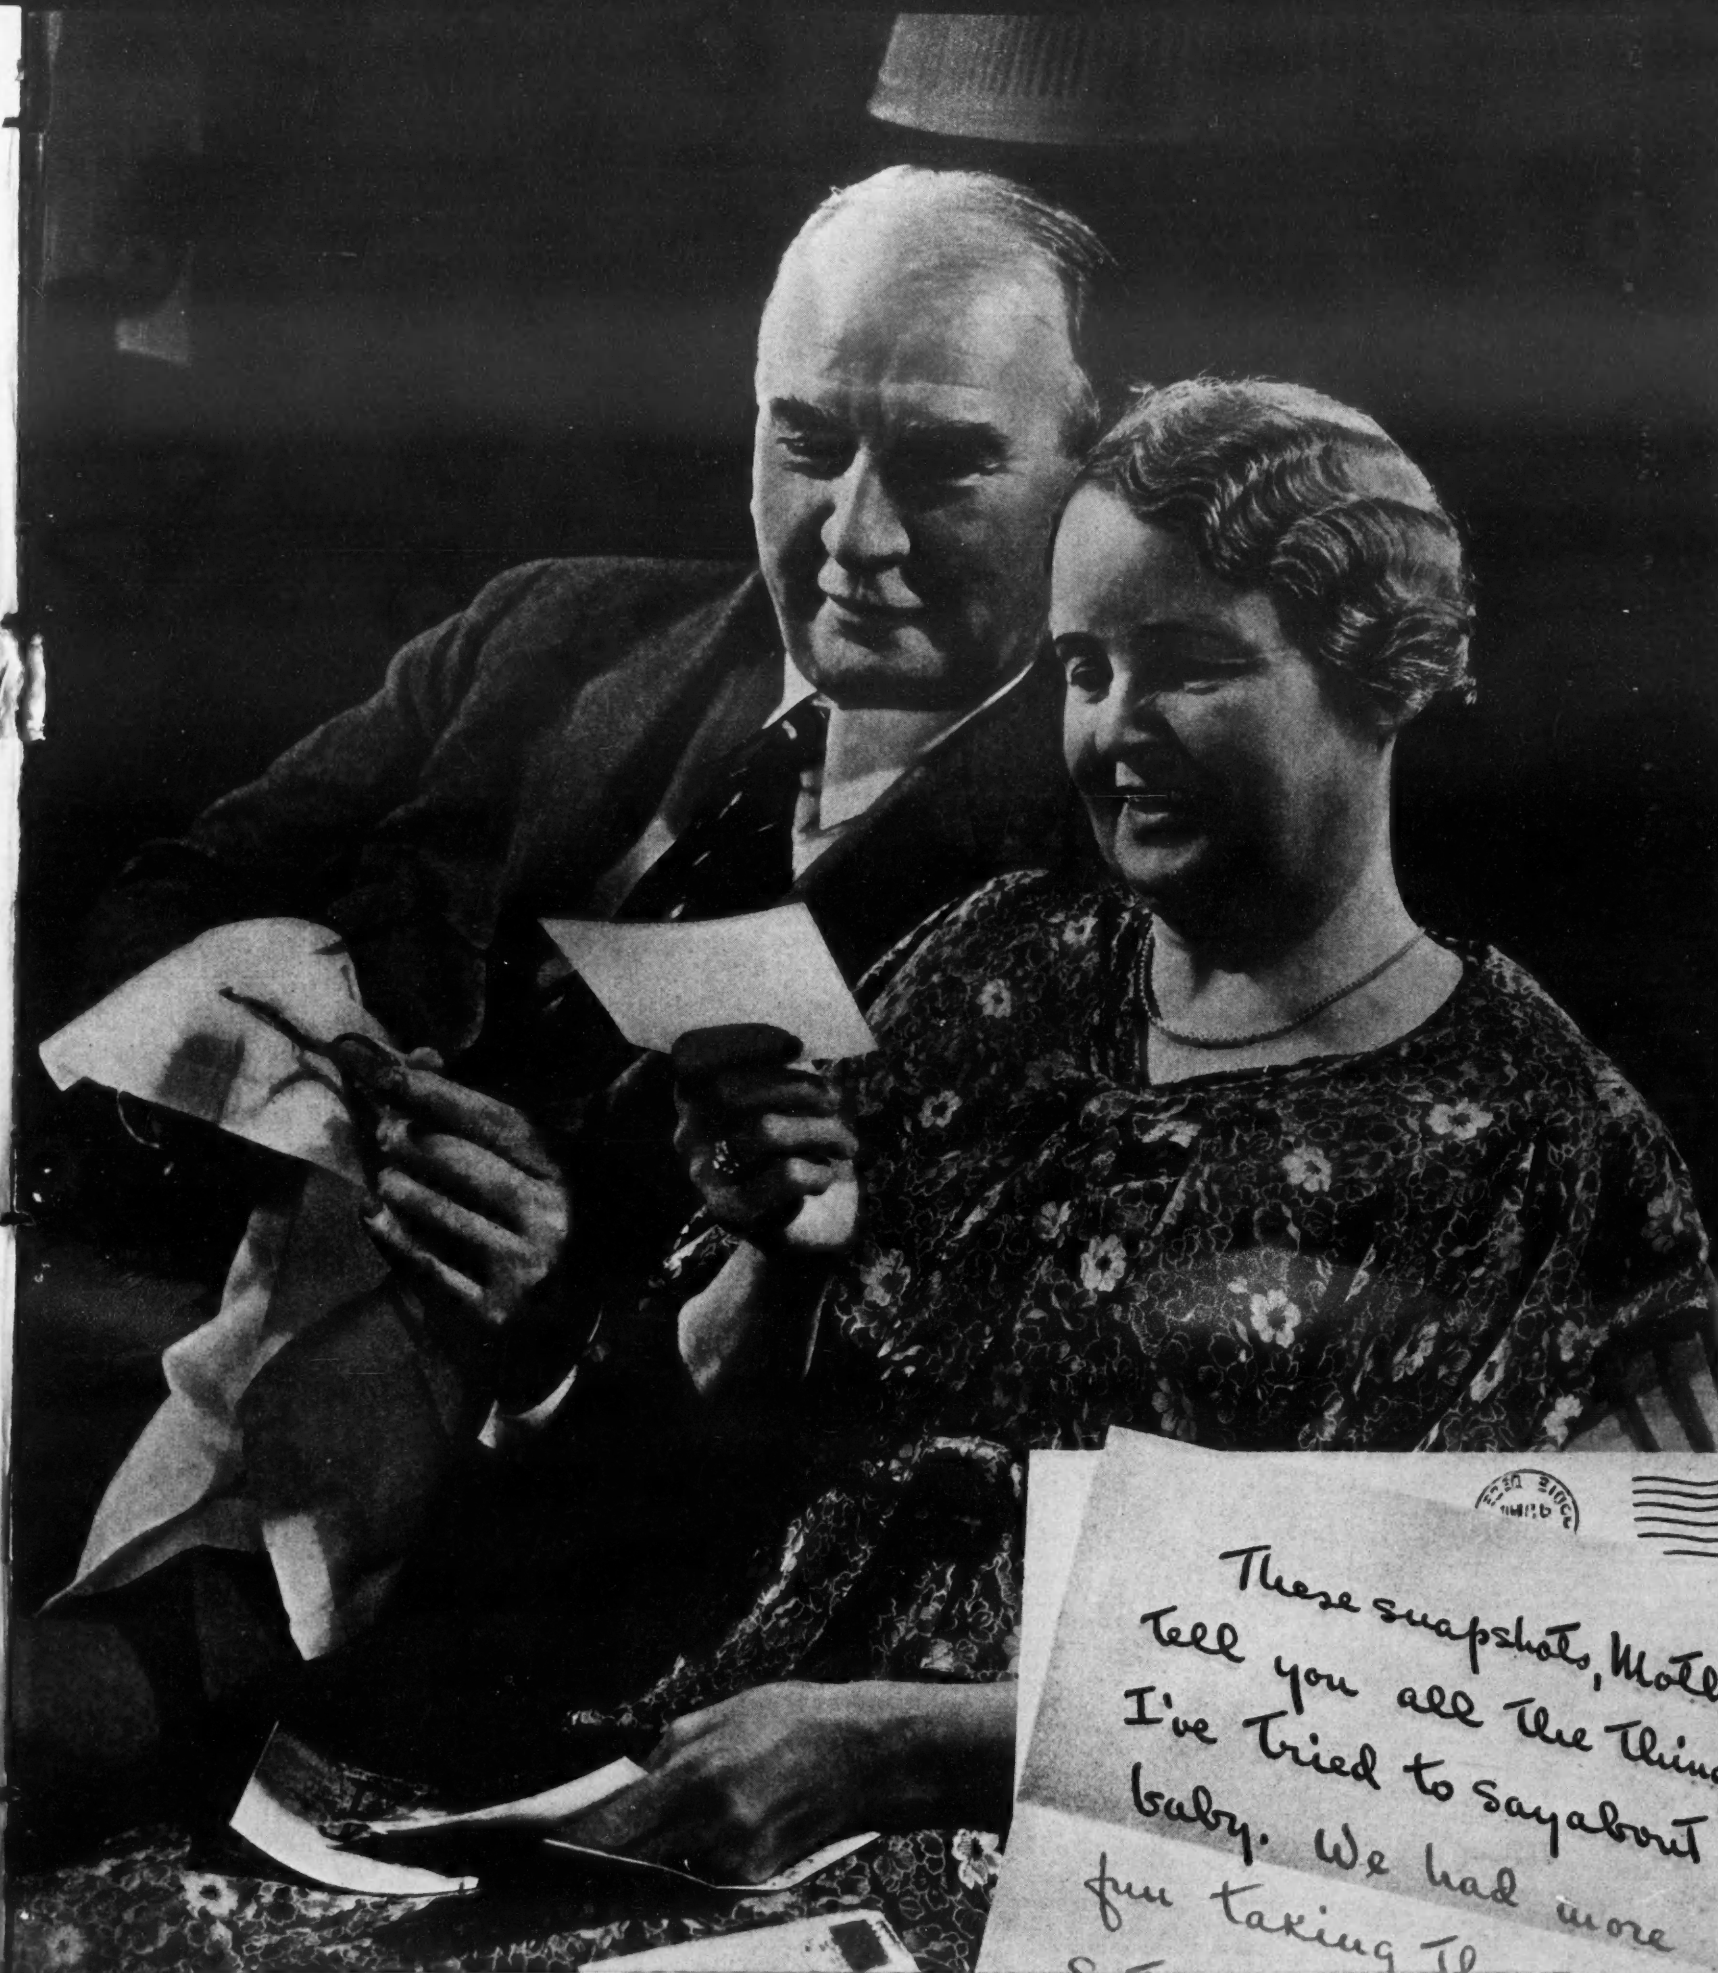 These snapshots, Moth
tell you all the thing
I've tried to say about
baby. We had more
fun taking th